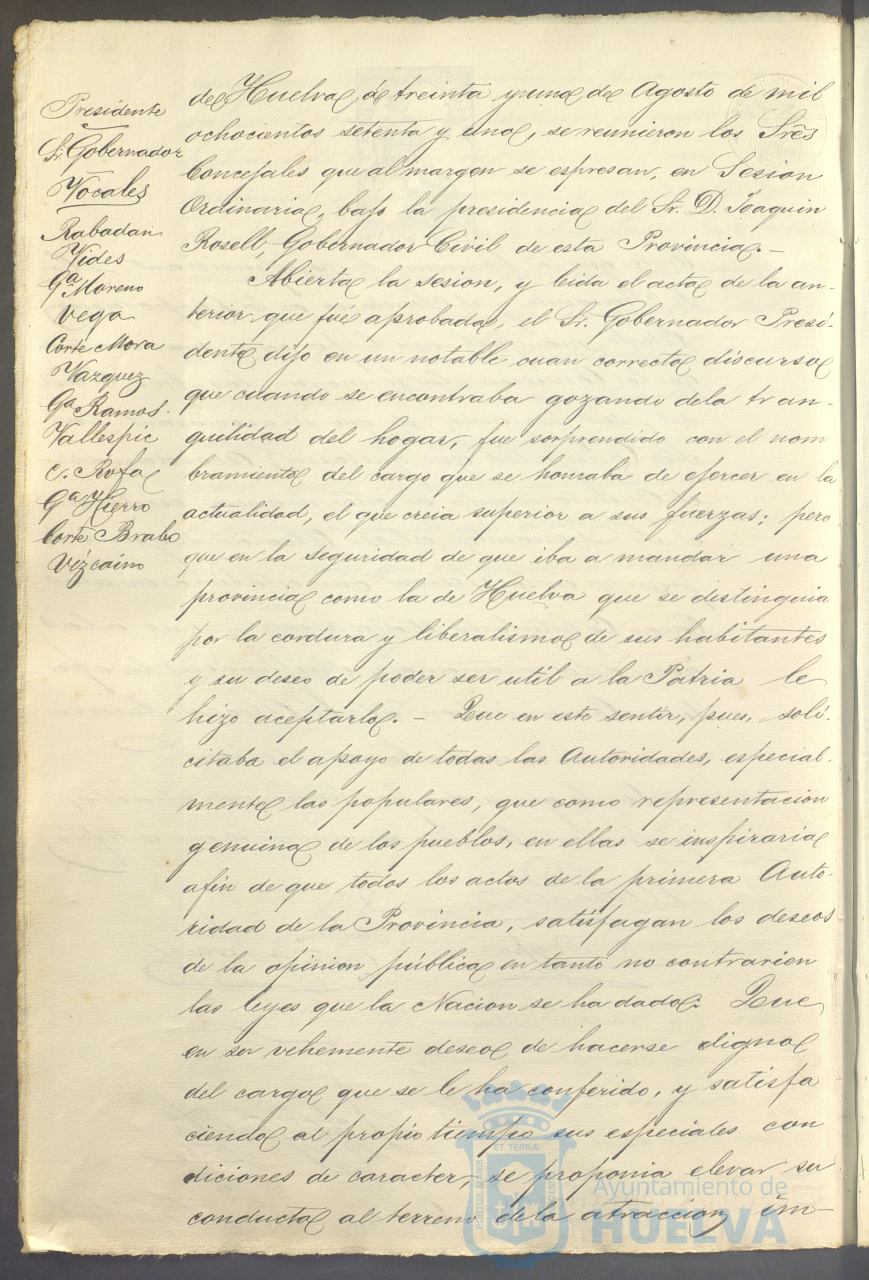 Presidente
Sr. Gobernador
Vocales
Rabadan
Vides
Gª Moreno
Vega
Corte Mora
Vazquez
Gª Ramos.
Vallespic
C. Rofa
Gª y Hierro
Corte Brabo
Vizcaino
de Huelva, á treinta y uno de Agosto de mil
ochocientos setenta y uno, se reunieron los Sres
Concejales que al margen se espresan, en Sesion
Ordinaria, bajo la presidencia del Sr. D. Joaquin
Rosell, Gobernador Civil de esta Provincia. -
Abierta la sesion, y leida el acta de la an-
terior que fué aprobada, el Sr. Gobernador Presi-
dente dijo en un notable cuan correcto discurso
que cuando se encontraba gozando dela tran-
quilidad del hogar, fue sorprendido con el nom
bramiento del cargo que se honraba de ejercer en la
actualidad, el que creia superior a sus fuerzas; pero
que en la seguridad de que iba a mandar una
provincia como la de Huelva que se distinguia
por la cordura y liberalismo de sus habitantes
y su deseo de poder ser util a la Patria le
hizo aceptarlo. - Que en este sentir, pues, soli-
citaba el apoyo de todas las Autoridades, especial-
mente las populares, que como representacion
genuina de los pueblos, en ellas se inspiraria
afin de que todos los actos de la primera Auto-
ridad de la Provincia, satisfagan los deseos
de la opinion pública en tanto no contrarien
las leyes que la Nacion se ha dado. Que
en su vehemente deseo de hacerse digno
del cargo que se le ha conferido, y satisfa
ciendo al propio tiempo sus especiales con
diciones de caracter, se proponia elevar su
conducta al terreno dela atraccion, im-
ET TERRÆ
PORTUS MARIS
Ayuntamiento de
HUELVA